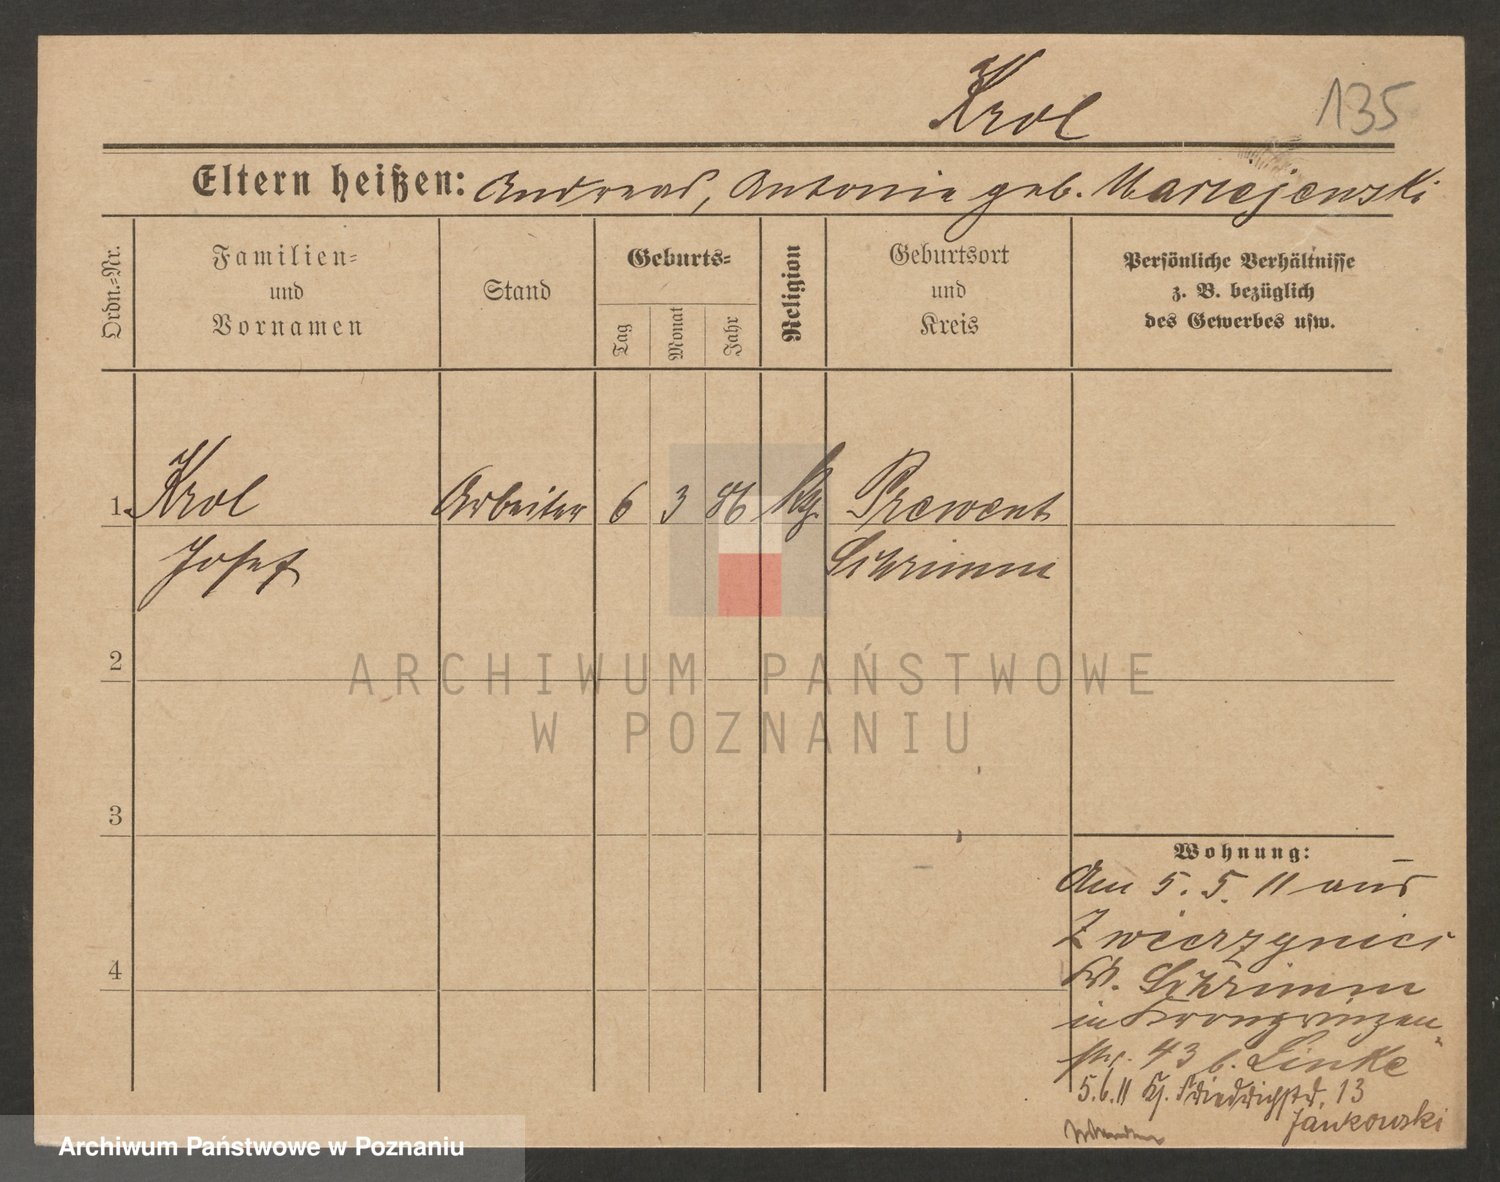 Krol
135
Eltern heißen: Andreas, Antonie geb. Maciejewski
Ordn.-Nr.
Familien-
und
Vornamen
Stand
Geburts-
Tag
Monat
Jahr
Religion
Geburtsort
und
Kreis
Persönliche Verhältnisse
z. B. bezüglich
des Gewerbes usw.
1. Krol Arbeiter 6 3 86 Prewent
Josef Schrimm
2
ARCHIWUM PAŃSTWOWE
W POZNANIU
3
Wohnung:
Am 5. 5. 11 aus
4
Kr. Schrimm
in Kronprinzen
str. 43 b. Linke
5.6.11 Friedrichstr. 13
Jankowski
Archiwum Państwowe w Poznaniu